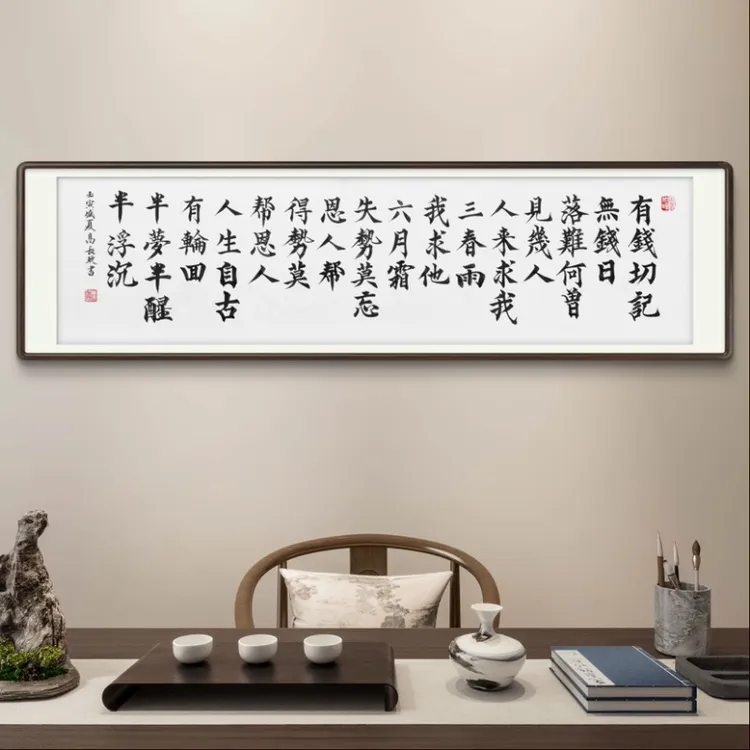 有錢切記
無錢日
落難何曾
見幾人
人来求我
三春雨
我求他
六月霜
失勢莫忘
恩人帮
得勢莫
帮恩人
人生自古
有輪回
半夢半醒
半浮沉
壬寅盛夏高长欽書